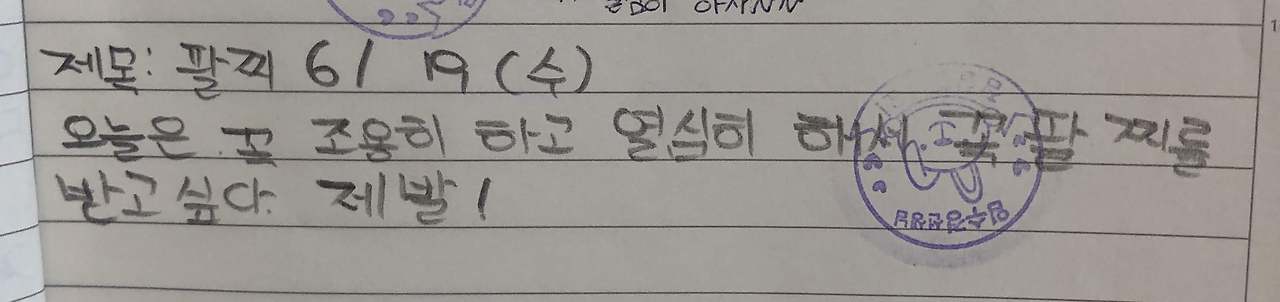 제목: 팔찌 6/19(수)
오늘은 꼬 조용히 하고 열심히 하서 꼭 팔찌를
받고싶다. 제발!